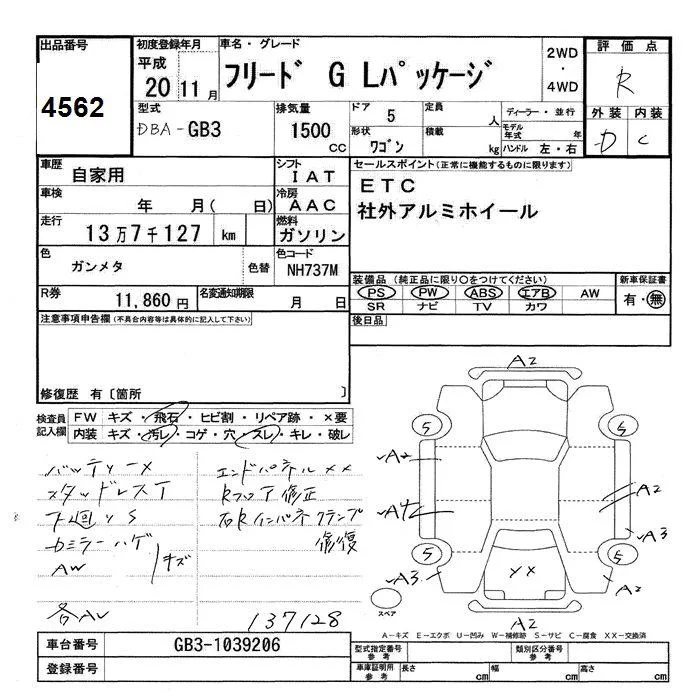 出品番号 初度登録年月 車名・グレード 2WD・4WD 評価点
4562 平成 20 11月 フリード G Lパッケージ R
型式 DBA-GB3 排気量 1500 CC ドア 5 定員 人 ディーラー・並行 外装 内装
形状 ワゴン 積載 kg モデル年式 年 ハンドル 左・右 D C
車歴 自家用 シフト IAT セールスポイント(正常に機能するものに限ります)
車検 年 月( 日) 冷房 AAC ETC
走行 13万7千127 km 燃料 ガソリン 社外アルミホイール
色 ガンメタ 色替 色コード NH737M
装備品 (純正品に限り○をつけてください) 新車保証書
PS PW ABS エアB AW 有・無
SR ナビ TV カワ
R券 11,860円 名変通知期限 月 日 後日品
注意事項申告欄(不具合内容等は具体的に記入して下さい)
修復歴 有〔箇所 〕
検査員記入欄 FW キズ・飛石・ヒビ割・リペア跡・×要
内装 キズ・汚レ・コゲ・穴・スレ・キレ・破レ
バッティーメ エンドパネル××
スタッドレスT Rフロア修正
下廻りS 右Rインパネクランプ
Dミラーハゲ 修復
AW キズ
各AL 137128
A2
5 5
A2
A2
A3
A3
××
5 5
A2
A2
スペア
A-キズ E-エクボ U-凹み W-補修跡 S-サビ C-腐食 XX-交換済
車台番号 GB3-1039206 型式指定番号 参考 類別区分番号 参考
登録番号 車庫証明用 参考 長さ cm 幅 cm 高さ cm